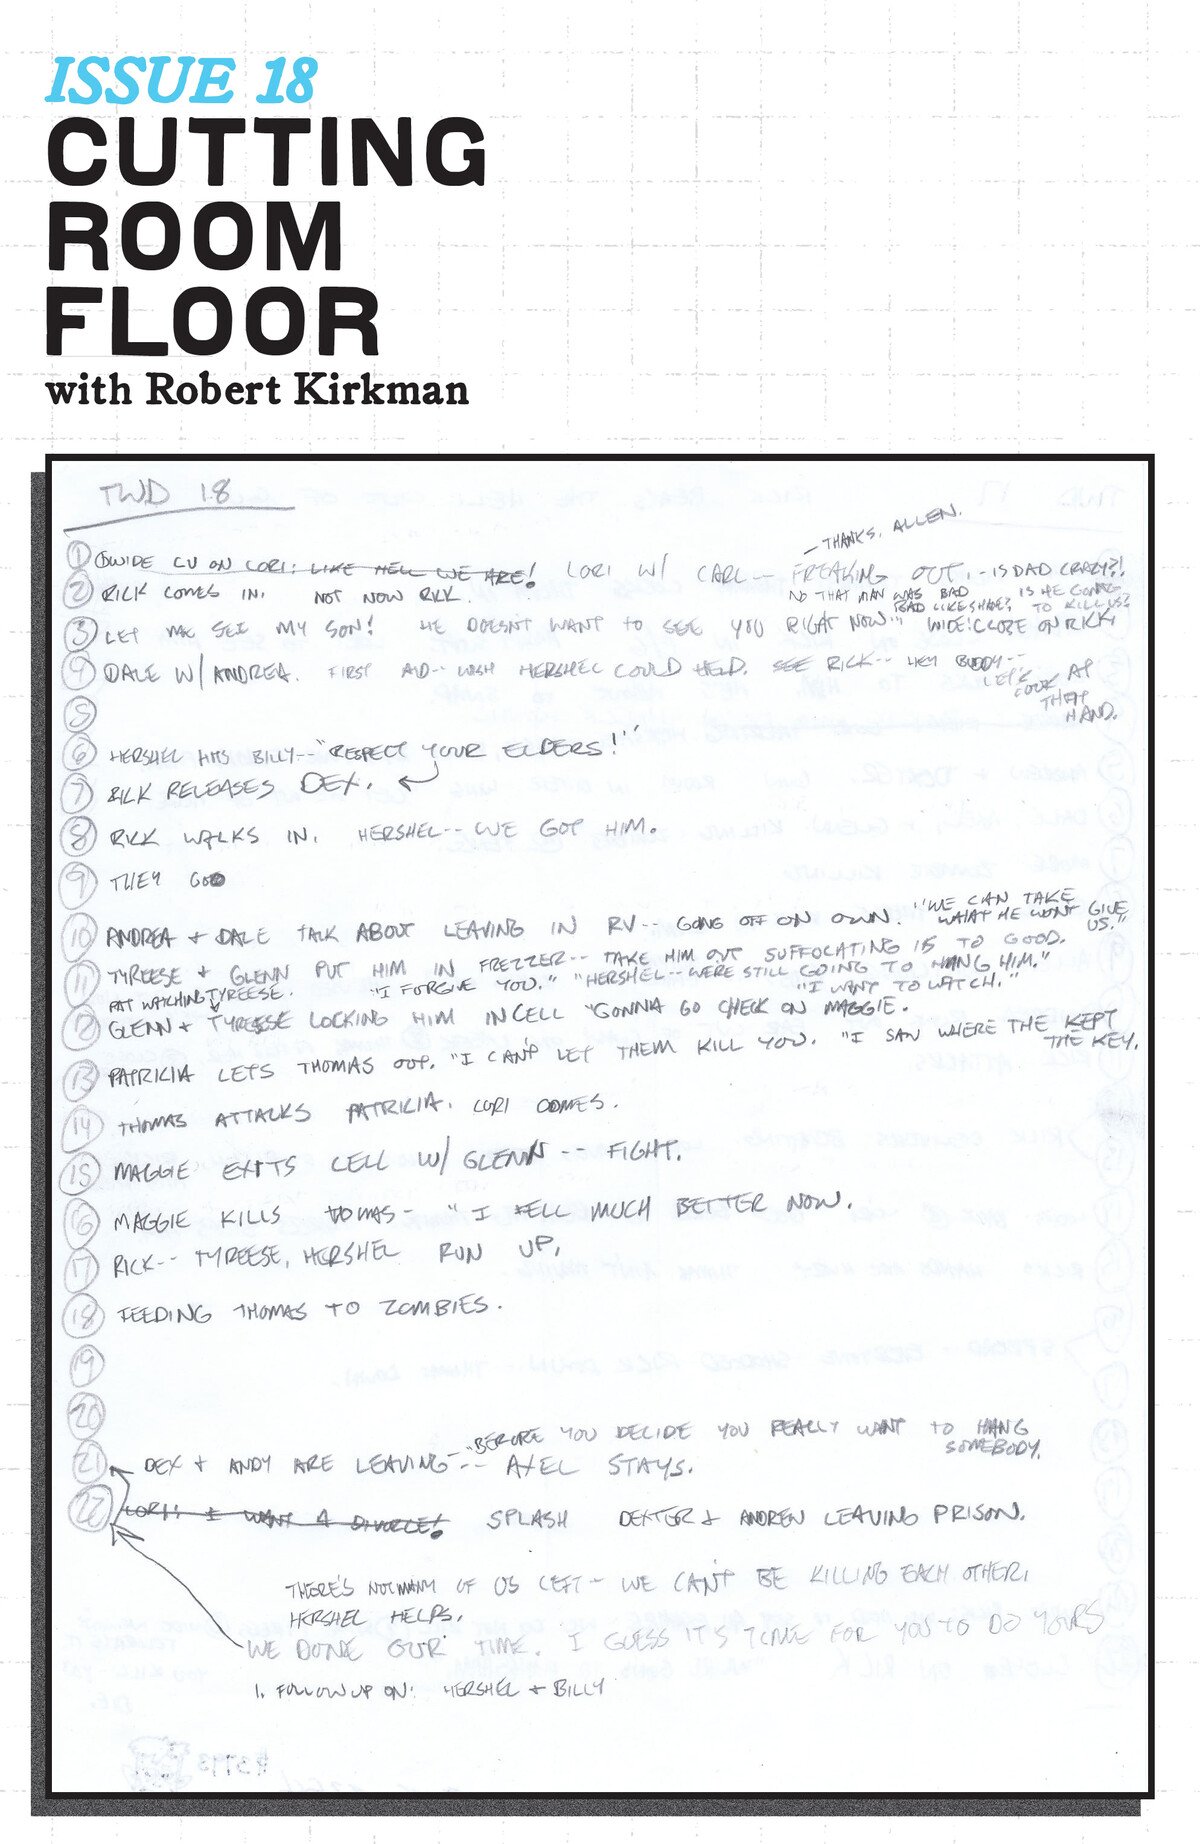 ISSUE 18
CUTTING
ROOM
FLOOR
with Robert Kirkman
TWD 18
— THANKS, ALLEN.
① WIDE CU ON LORI: LIKE HELL WE ARE! LORI W/ CARL -- FREAKING OUT, - IS DAD CRAZY?!
NO THAT MAN WAS BAD IS HE GOING
② RICK COMES IN. NOT NOW RICK. BAD LIKE SHANE? TO KILL US?
③ LET ME SEE MY SON! HE DOESNT WANT TO SEE YOU RIGHT NOW" WIDE: CLOSE ON RICK,
④ DALE W/ ANDREA. FIRST AID -- WISH HERSHEL COULD HELD. SEE RICK -- HEY BUDDY --
LET'S
LOOK AT
THAT
HAND.
⑤
⑥ HERSHEL HITS BILLY -- "RESPECT YOUR ELDERS!"
⑦ RICK RELEASES DEX.
⑧ RICK WALKS IN. HERSHEL -- WE GOT HIM.
⑨ THEY GO
⑩ ANDREA + DALE TALK ABOUT LEAVING IN RV -- GOING OFF ON OWN. "WE CAN TAKE
WHAT HE WONT GIVE
US."
⑪ TYREESE + GLENN PUT HIM IN FREZZER -- TAKE HIM OUT SUFFOCATING IS TO GOOD.
"I FORGIVE YOU." "HERSHEL -- WERE STILL GOING TO HANG HIM."
PAT WATCHING TYREESE. "I WANT TO WATCH."
⑫ GLENN + TYREESE LOCKING HIM IN CELL "GONNA GO CHECK ON MAGGIE.
⑬ PATRICIA LETS THOMAS OUT. "I CAN'T LET THEM KILL YOU. "I SAW WHERE THE KEPT
THE KEY.
⑭ THOMAS ATTACKS PATRICIA. LORI COMES.
⑮ MAGGIE EXITS CELL W/ GLENN -- FIGHT.
⑯ MAGGIE KILLS TOMAS - "I FELL MUCH BETTER NOW.
⑰ RICK -- TYREESE, HERSHEL RUN UP,
⑱ FEEDING THOMAS TO ZOMBIES.
⑲
⑳
㉑ DEX + ANDY ARE LEAVING -- "BEFORE YOU DECIDE YOU REALLY WANT TO HANG
SOMEBODY.
-- AXEL STAYS.
㉒ LORI: I WANT A DIVORCE! SPLASH DEXTER + ANDREW LEAVING PRISON.
THERE'S NOT MANY OF US LEFT - WE CAN'T BE KILLING EACH OTHER,
HERSHEL HELPS.
WE DONE OUR TIME. I GUESS IT'S TIME FOR YOU TO DO YOURS
1. FOLLOW UP ON: HERSHEL + BILLY